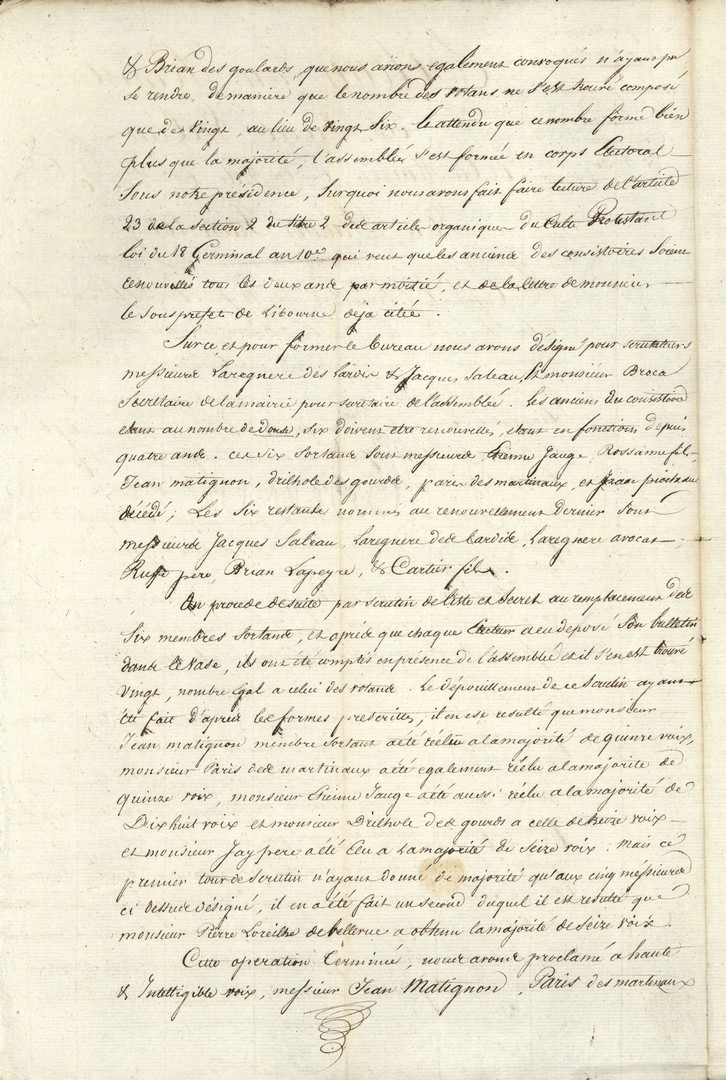 & Brian des goulards, que nous avions egalement convoqués n'ayans pu
se rendre, de maniere que le nombre des votans ne s'est trouvé composé
que des vingt, au lieu de vingt six. Et attendu que ce nombre forme bien
plus que la majorité, l'assemblée s'est formée en corps Electoral
sous notre présidence, sur quoi nous avons fait faire lecture de l'article
23 de la section 2 du titre 2 des articles organiques du Culte Protestant
loi du 18 Germinal an 10e qui veut que les anciens des consistoires soient
renouvellés tous les deux ans par moitié, et de la lettre de monsieur
le sous prefet de Libourne déja citée.
Sur ce et pour former le bureau nous avons désigné pour scrutateurs
messieurs Laregnere des & Jacques Saleau, et monsieur Broca
Secretaire de la mairie pour secretaire de l'assemblée. Les anciens du consistoire
etant au nombre de douse, six doivent etre renouvellés, etant en fonctions depuis
quatre ans. ces six sortans sont messieurs Etienne Jauge, Rossane fils,
Jean matignon, drilhole des gourds, paris des martinaux, et
décédé; Les six restants nommés au renouvellement dernier sont
messieurs Jacques Saleau, Laregnere des bardis, Laregnere avocat,
Ruffe pere, Brian Lapeyre, & Cartier fils.
On procede desuite par scrutin de liste et secret au remplacement des
six membres sortans, et après que chaque Electeur a eu deposé son bulletin
dans le vase, ils ont été comptés en présence de l'assemblée et il s'en est trouvé
vingt, nombre égal a celui des votans. Le dépouillement de ce scrutin ayant
été fait d'après les formes prescrittes, il en est resulté que monsieur
Jean matignon membre sortant a été réelu a la majorité de quinze voix,
monsieur Paris des martinaux a été egalement réelu a la majorité de
quinze voix, monsieur Etienne Jauge a été aussi réelu a la majorité de
Dix huit voix et monsieur Drilhole des gourds a celle de treize voix
et monsieur Jay pere a été Elu a la majorité de seize voix: mais ce
premier tour de scrutin n'ayant donné de majorité qu'aux cinq messieurs
ci dessus désigné, il en a été fait un second duquel il est resulté que
monsieur Pierre Loreilhe de bellevue a obtenu la majorité de seize voix.
Cette operation terminée, nous avons proclamé a haute
& Intelligible voix, messieur Jean Matignon, Paris des martinaux